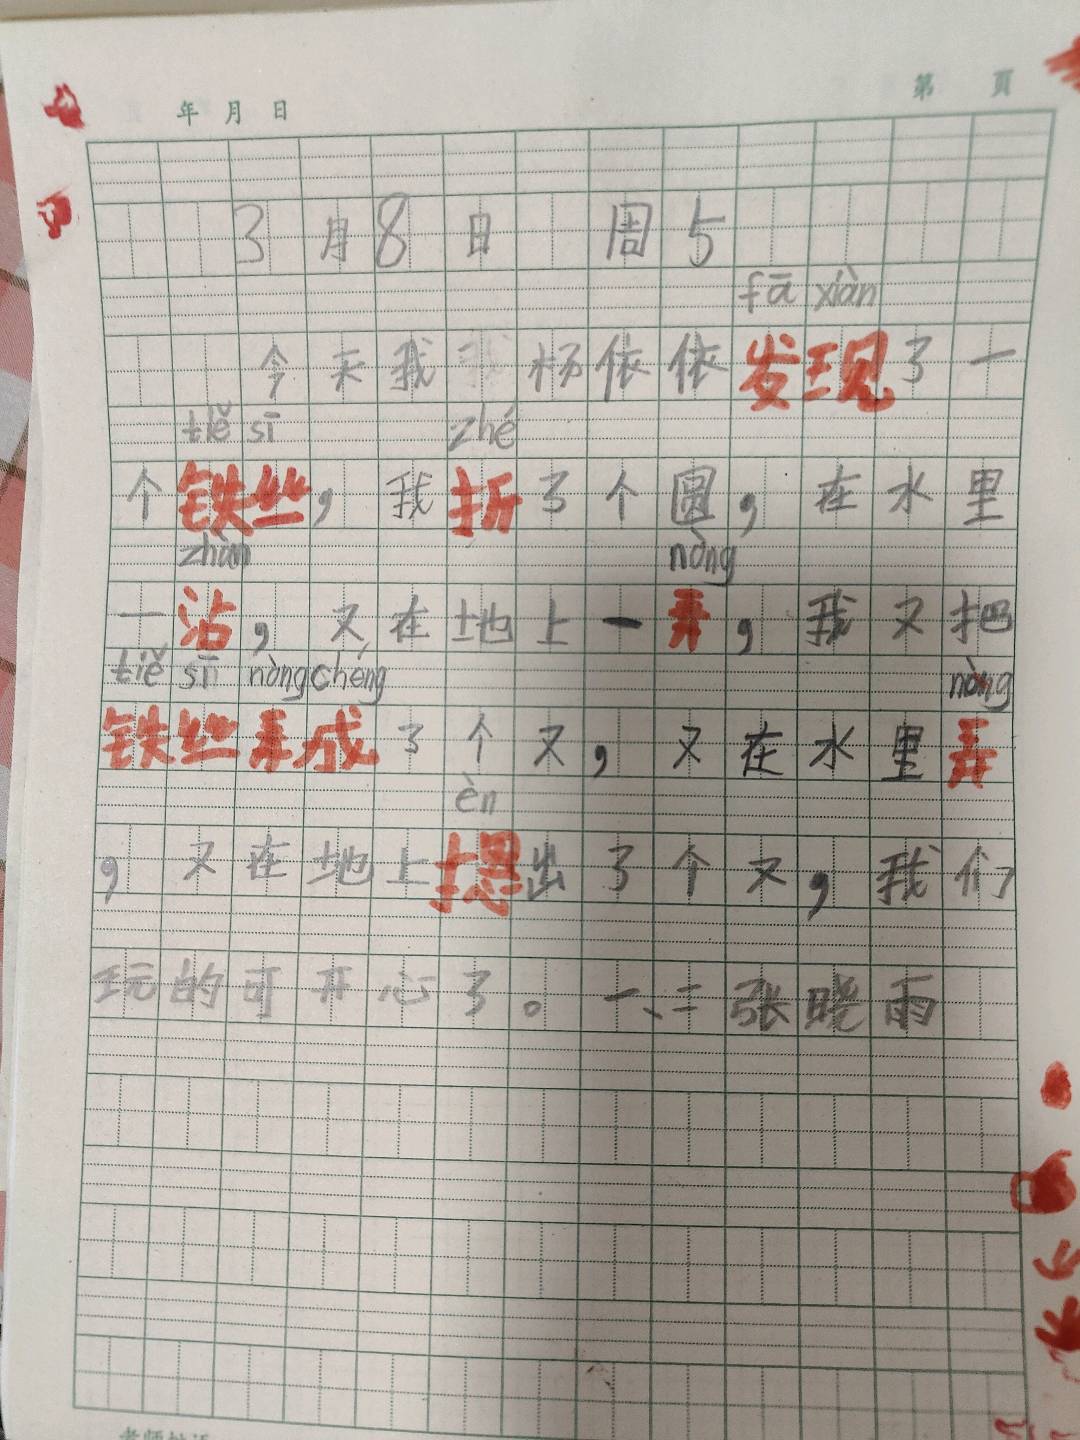 年 月 日
第 頁
3月8日 周5
fā xiàn
今天我 杨依依发现了一
tiě sī zhé
个铁丝，我折了个圆，在水里
zhàn nòng
一沾，又在地上一弄，我又把
tiě sī nòng chéng nòng
铁丝弄成了个又，又在水里弄
èn
，又在地上摁出了个又，我们
玩的可开心了。一、二张晓雨